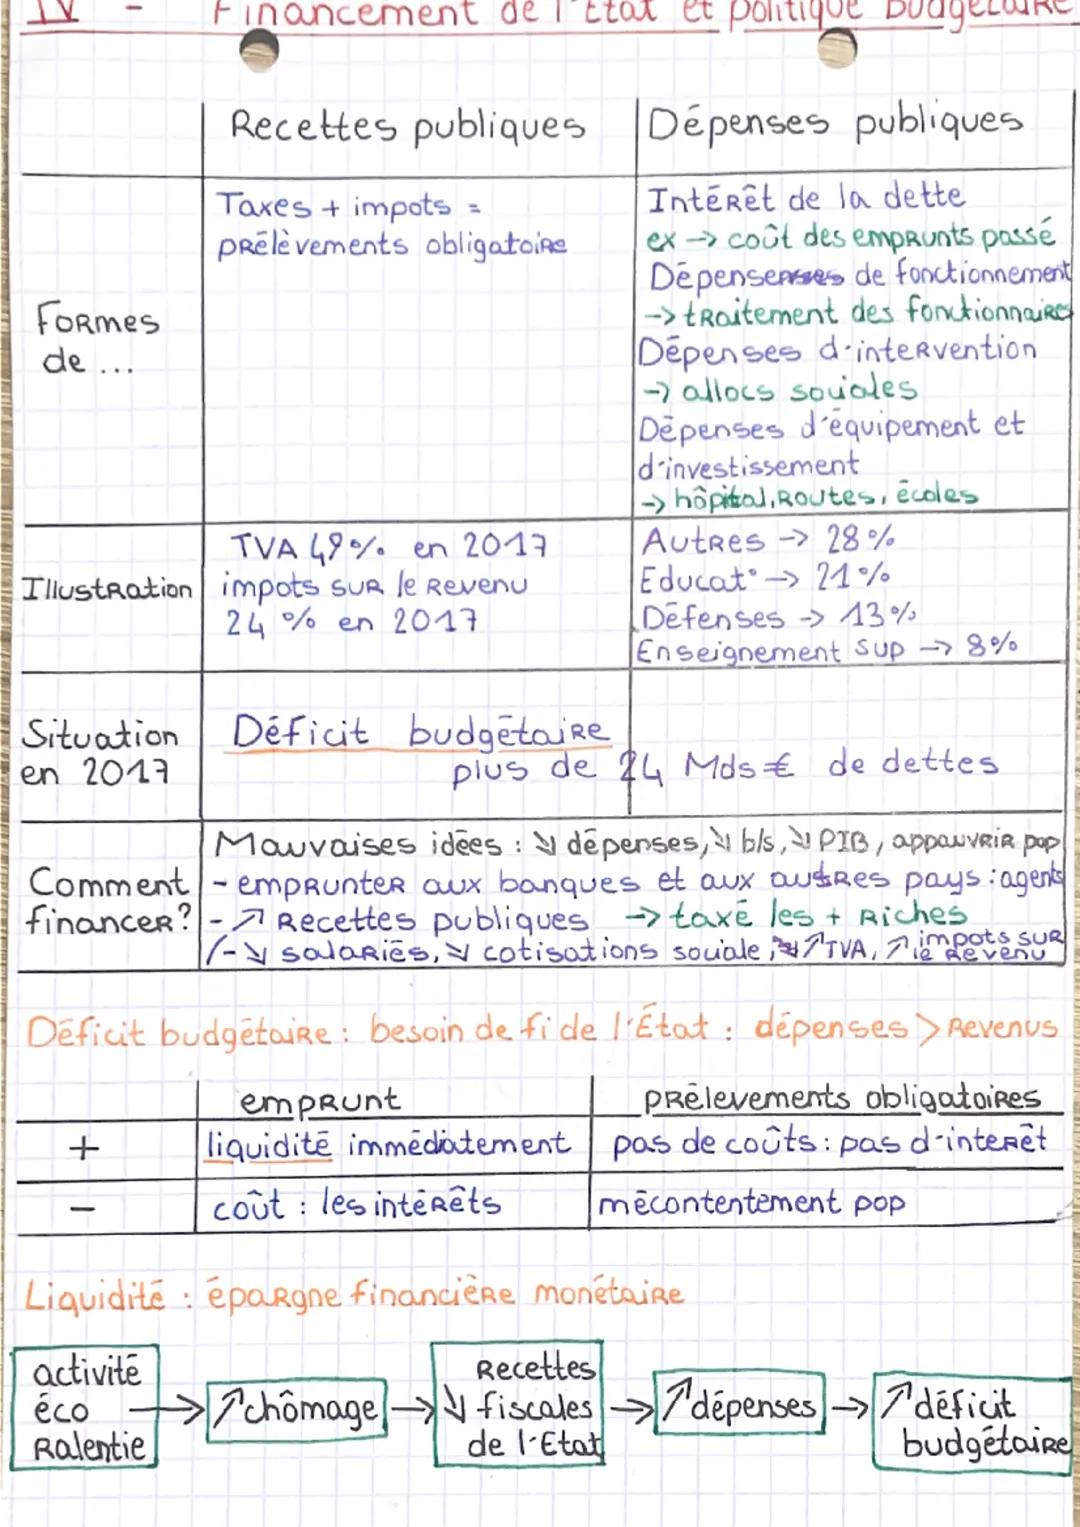 IV - Financement de l'État et politique budgétaire
Recettes publiques
Dépenses publiques
Formes
de ...
Taxes + impots =
prélèvements obligatoire
Intérêt de la dette
ex -> coût des emprunts passé
Dépenses de fonctionnement
-> traitement des fonctionnaires
Dépenses d'intervention
-> allocs sociales
Dépenses d'équipement et
d'investissement
-> hôpital, routes, écoles
Illustration
TVA 49% en 2017
impots sur le revenu
24 % en 2017
Autres -> 28%
Educat° -> 21%
Défenses -> 13%
Enseignement sup -> 8%
Situation
en 2017
Déficit budgétaire
plus de 24 Mds € de dettes
Comment
financer?
Mauvaises idées : ↘ dépenses, ↘ b/s, ↘ PIB, appauvrir pop
- emprunter aux banques et aux autres pays : agents
- ↗ Recettes publiques -> taxé les + Riches
/- ↘ salariés, ↘ cotisations sociale, ↗ TVA, ↗ impots sur
le revenu
Déficit budgétaire : besoin de fi de l'État : dépenses > Revenus
emprunt
prélevements obligatoires
+
liquidité immédiatement
pas de coûts : pas d'interêt
-
coût : les intérêts
mécontentement pop
Liquidité : épargne financière monétaire
activité
éco
Ralentie
-> ↗ chômage ->
Recettes
↘ fiscales
de l'Etat
-> ↗ dépenses ->
↗ déficit
budgétaire